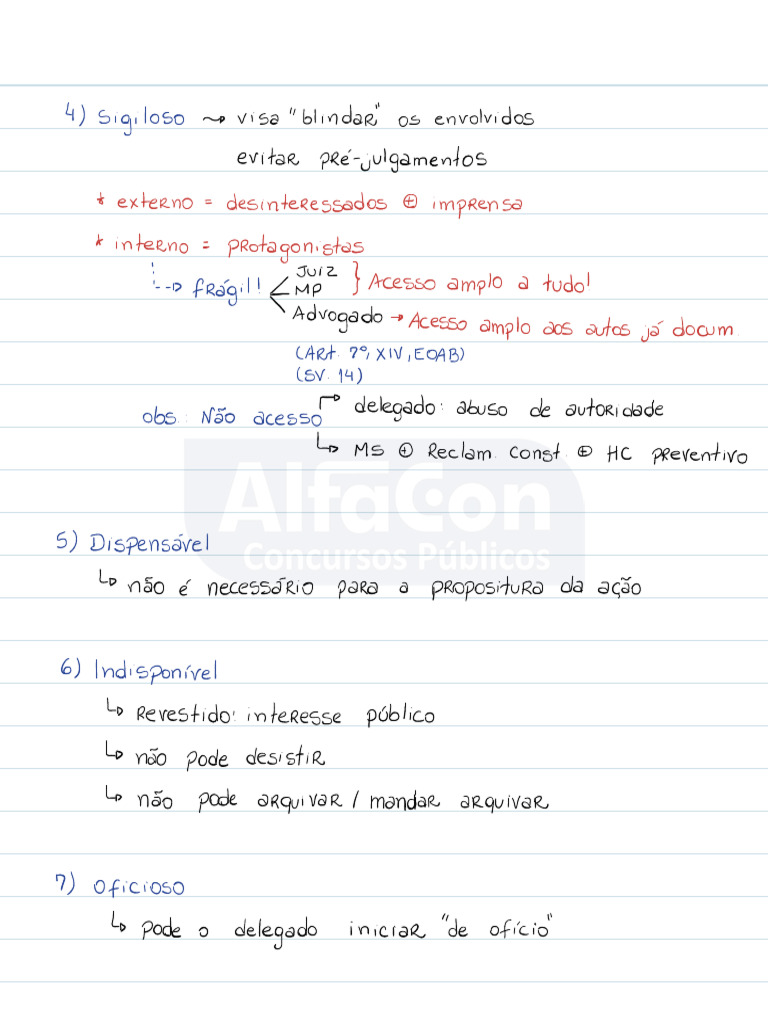 4) Sigiloso ⤳ visa "blindar" os envolvidos
evitar pré-julgamentos
* externo = desinteressados ⊕ imprensa
* interno = protagonistas
frágil! Juiz } Acesso amplo a tudo!
MP
Advogado → Acesso amplo aos autos já docum.
(Art. 7º, XIV, EOAB)
(SV. 14)
obs.: Não acesso → delegado: abuso de autoridade
↳ MS ⊕ Reclam. Const. ⊕ HC preventivo
AlfaCon
Concursos Públicos
5) Dispensável
↳ não é necessário para a propositura da ação
6) Indisponível
↳ Revestido: interesse público
↳ não pode desistir
↳ não pode arquivar / mandar arquivar
7) Oficioso
↳ pode o delegado iniciar "de ofício"